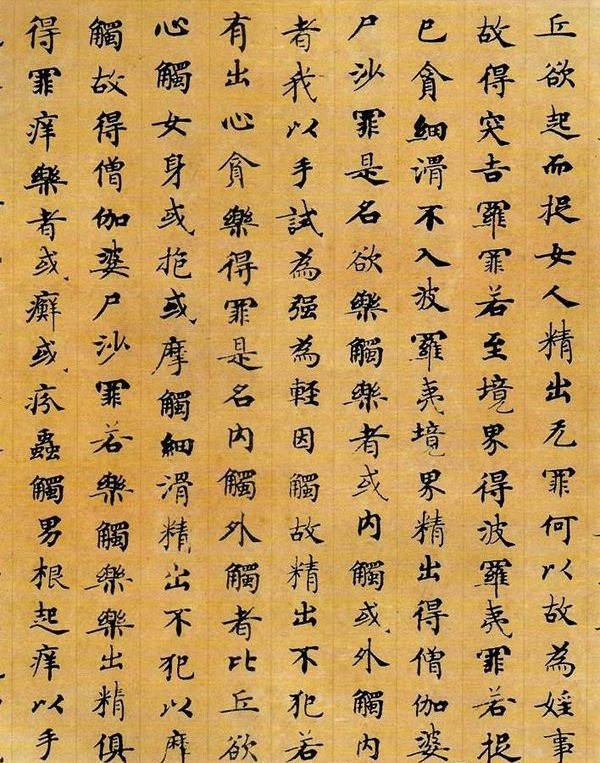 丘欲起而捉女人精出无罪何以故為婬事
故得突吉羅罪若至境界得波羅夷罪若捉
已貪細滑不入波羅夷境界精出得僧伽婆
尸沙罪是名欲樂觸樂者或內觸或外觸內
者我以手試為强為軽因觸故精出不犯若
有出心貪樂得罪是名內觸外觸者比丘欲
心觸女身或抱或摩觸細滑精出不犯以摩
觸故得僧伽婆尸沙罪若樂觸樂樂出精俱
得罪痒樂者或癬或疥蟲觸男根起痒以手